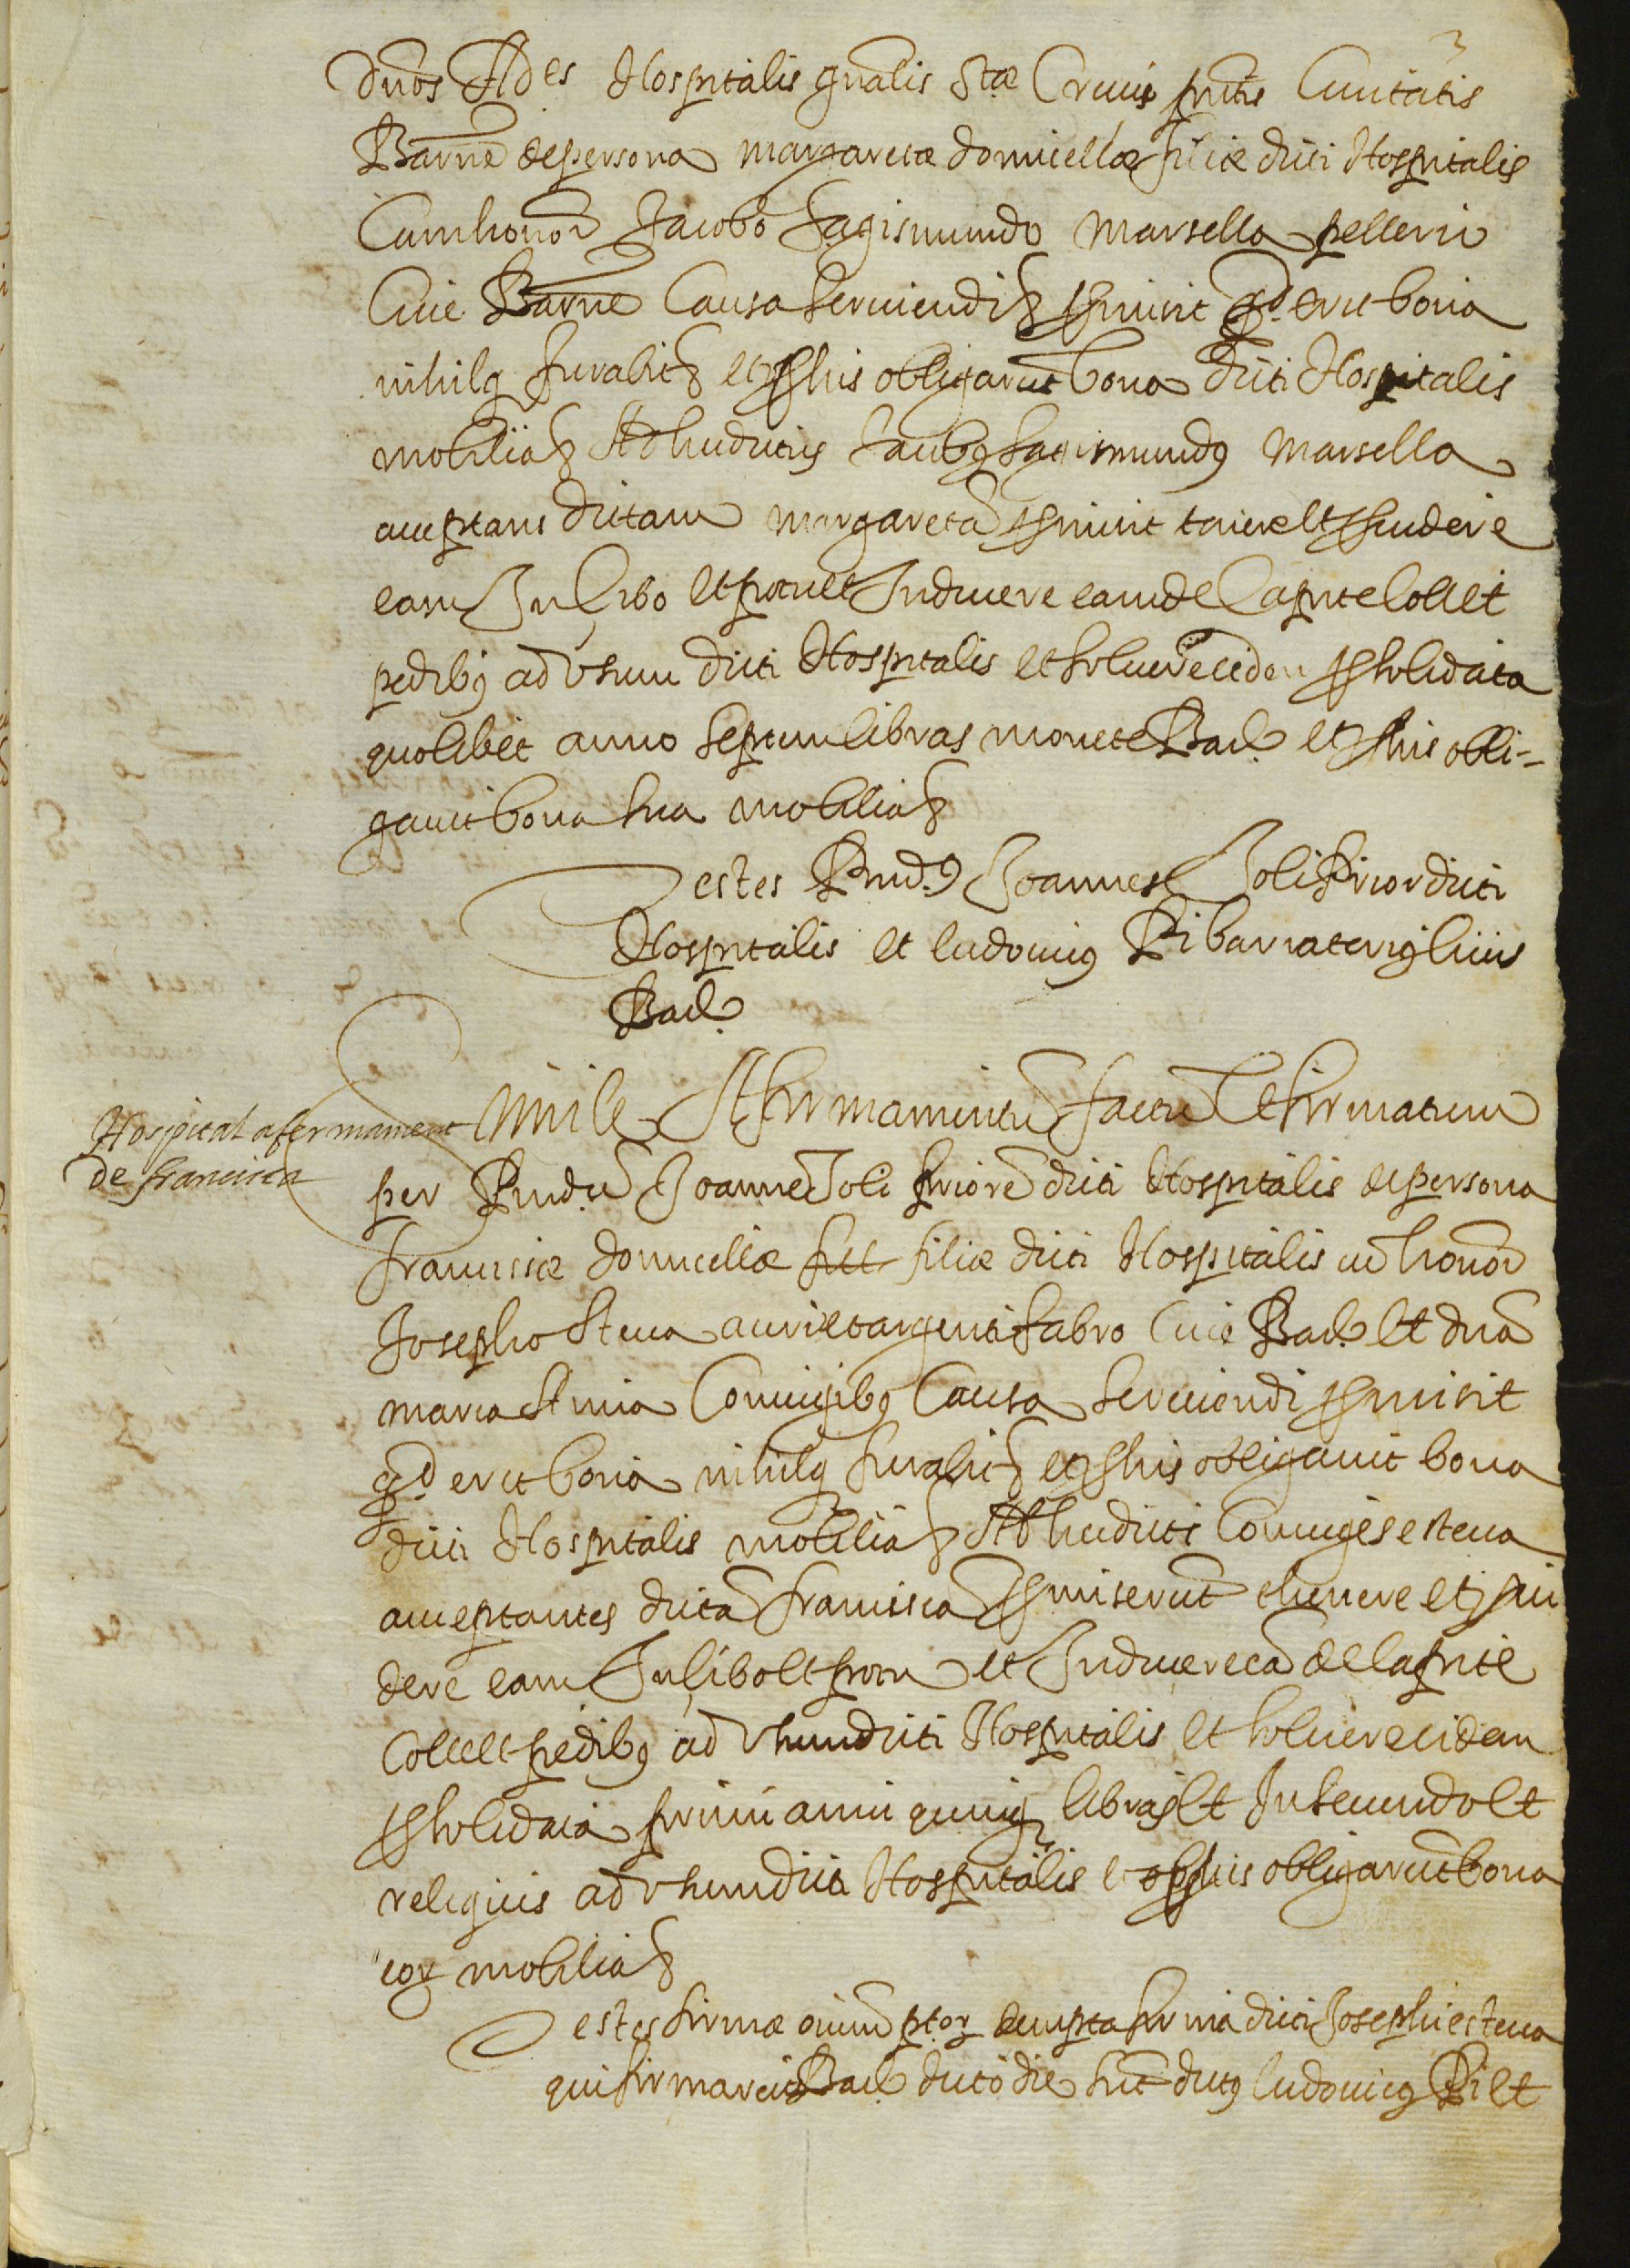 dños Ad.es Hospitalis gñalis Stæ Crucis pñtis Civitatis
Barñe de persona margaretæ domicellæ filiæ dicti Hospitalis
Cum honor. Jacobo Sagismundo Marsella pellerio
Cive Barñe Causa serviendi &c promisit qd. erit bona
nihilq. furabit &c et pro his obligarũt bona dicti Hospitalis
mobilia &c Ad hec dictus Jacobus Sagismundus Marsella
acceptans dictam margaretã promisit tenere et providere
eam In cibo et potu et Induere eam de Capite Collo et
pedibus ad usum dicti Hospitalis et solvere eidem pro solidata
quolibet anno septem libras monete Barñ. et pro his obli-
gavit bona sua mobilia &c
Testes Rnd.9 Joannes Soli Prior dicti
Hospitalis et ludovicus Ribarnateri cives
Barñ.
Hospital afermament
de francisca
Simile Afirmamentũ factũ et firmatum
per Rndũ Joannẽ Soli priorẽ dicti Hospitalis de persona
francisce domicellæ filiæ dicti Hospitalis cũ honor.
Josepho Steva auri et argenti fabro Cive Barñ. et dña
maria Stevia Coniugibus Causa serviendi promisit
qd erit bona nihilq. furabit &c et pro his obligavit bona
dicti Hospitalis mobilia &c Ad hec dicti Coniuges esteva
acceptantes dictã franciscã promiserũt tenere et provi
dere eam In cibo et potu et Induere eã de Capite
Collo et pedibus ad usum dicti Hospitalis et solvere eidem
pro solidata primi anni quinq. libras et In secundo et
reliquis ad usum dicti Hospitalis et pro his obligarũt bona
eor. mobilia &c
Testes firmæ oĩum ptor. dempta firma dicti Josephi esteva
qui firmavit Barñ. dicto die sũt dictus ludovicus Ri et